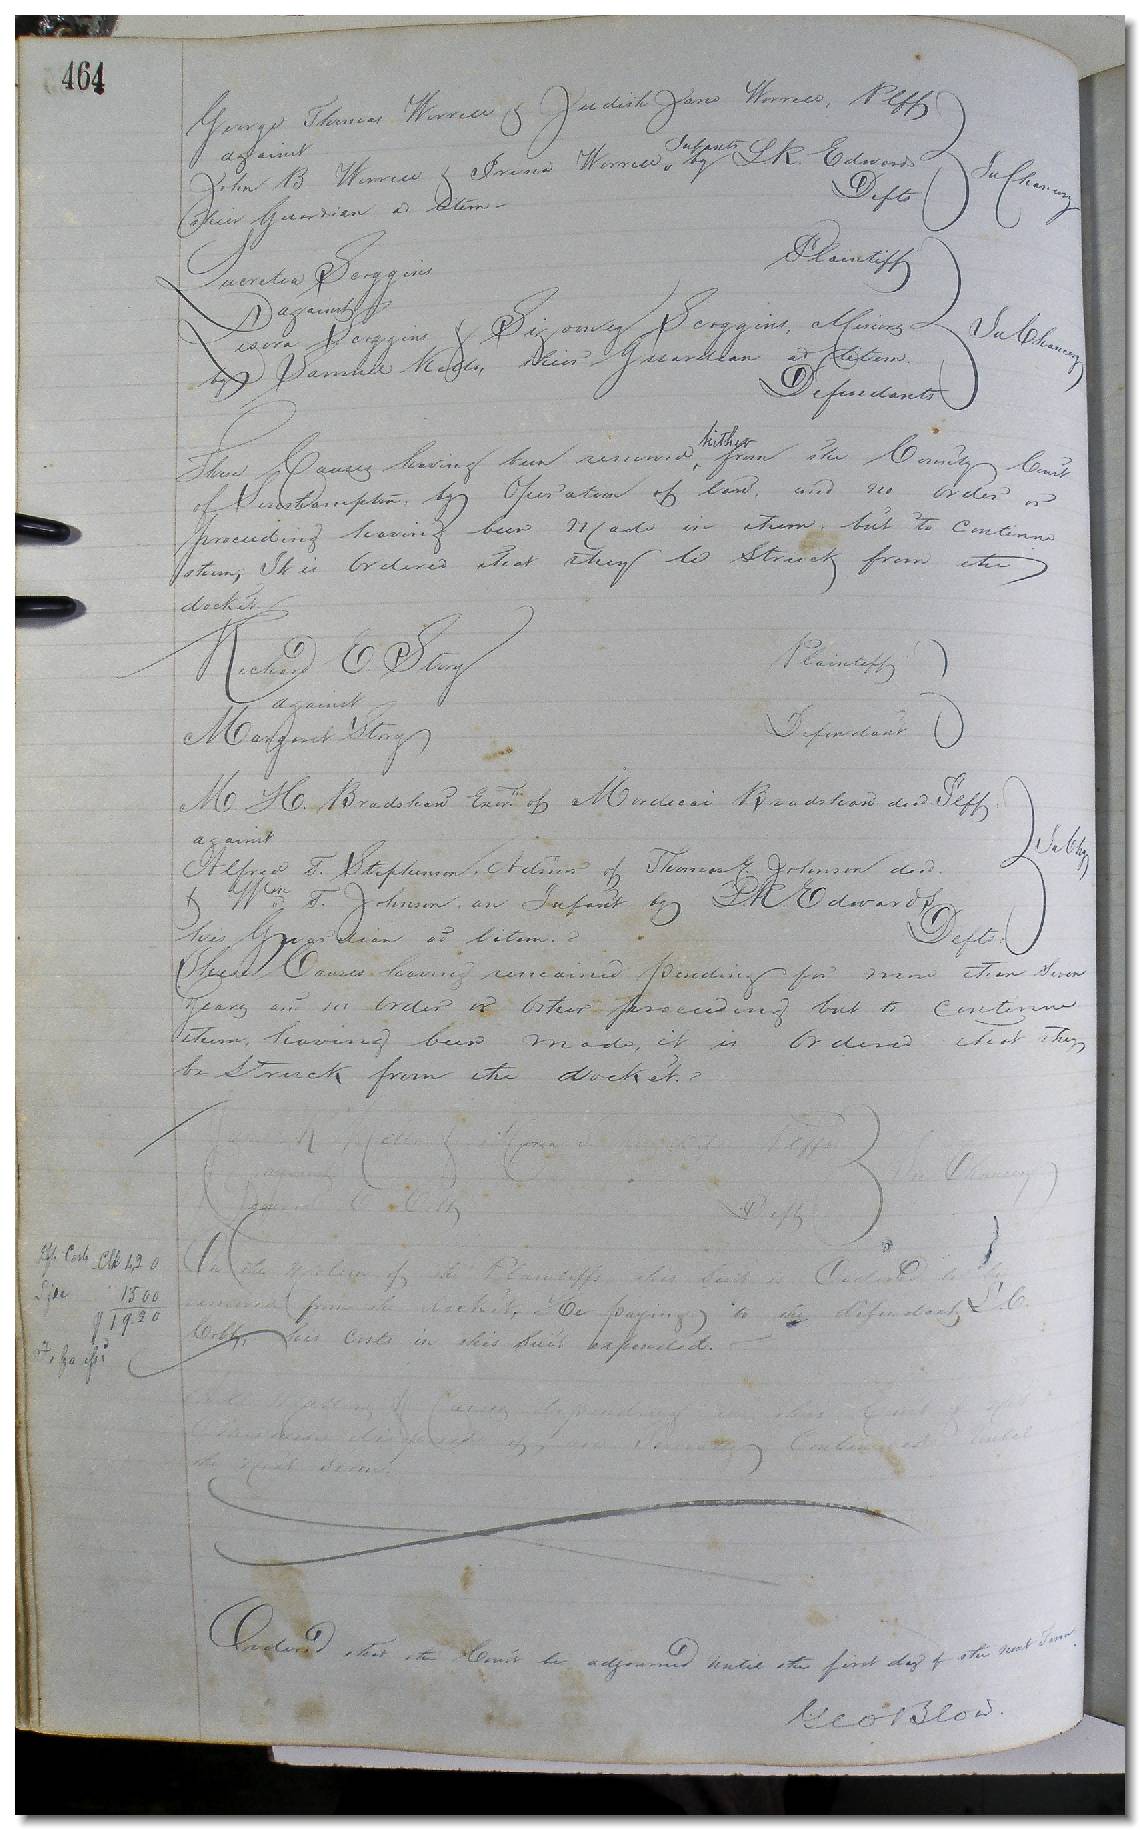 464
George Thomas Worrell & Judith Jane Worrell, Plffs
against
John B Worrell & Irena Worrell, Infants by L R. Edwards
their Guardian ad litem Defts In Chancery
Lucretia Scoggins Plaintiff
against
Scoggins & Sigourney Scoggins, Minors In Chancery
by Samuel Kello, their Guardian ad litem.
Defendants
These Causes having been removed hither from the County Court
of Southampton, by Operation of law, and no order or
proceeding having been made in them, but to continue
them, It is Ordered that they be Struck from the
docket
Richard E. Story Plaintiff
against
Margaret Story Defendant
M. H. Bradshaw Exor. of Mordecai Bradshaw decd Plff
against In Chy
Alfred T. Stephenson, Admr of Thomas E. Johnson decd.
& T. Johnson an Infant by L R Edwards
his Guardian ad litem. Defts.
These Causes having remained pending for more than Seven
years and no order or other proceeding but to continue
them, having been made, it is Ordered that they
be Struck from the docket.
Plffs
against In Chancery
Deft
Plffs Costs Clk 4.20
15.00
$ 19.20
On the motion of the Plaintiffs this Suit is Ordered to be
removed from the docket, he paying to the defendant L. C.
Cobb, his costs in this Suit expended.
All matters & Causes depending in this Court & not
otherwise disposed of, are Generally Continued until
the next term.
Ordered that the Court be adjourned until the first day of the next Term.
Geo Blow.